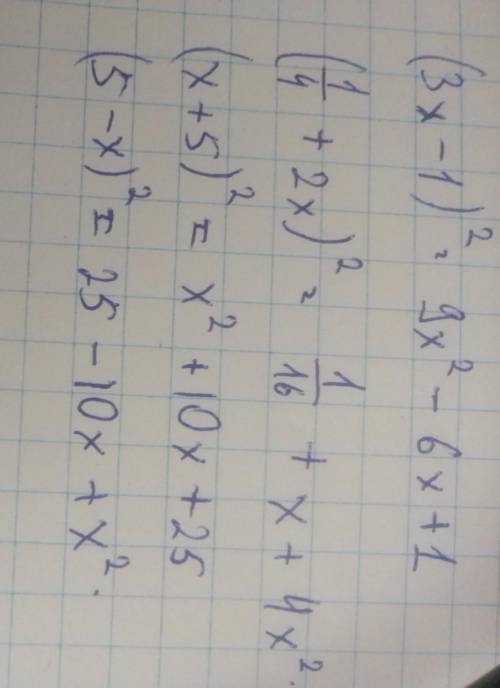 (3x - 1)² = 9x² - 6x + 1
(1/4 + 2x)² = 1/16 + x + 4x².
(x + 5)² = x² + 10x + 25
(5 - x)² = 25 - 10x + x².